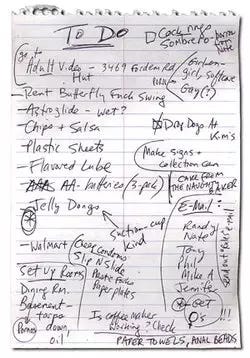 TO DO
Cock ring
Sombrero
go to
Adult Video - 3469 Gardena Rd
Hut
- Rent Butterfly Fuck Swing
Girl on
girl software
Gay(?)
- Astroglide - wet?
- Chips + Salsa
- Plastic Sheets
- Flavored Lube
- AA - batteries (3-pack)
- Jelly Dongs
Suction-cup
Kind
Dog Days At
Kim's
Make Signs +
collection can
E-Mail:
Randy
Nate
Tony
Phil
Mike A
Jennifer
GET
O's!!!
- Walmart
Cheap Condoms
Slip N Slide
Plastic Forks
Paper plates
Set Up Rooms
Dining Rm.
Basement -
tarps
down
Is coffee maker
working? Check
PAPER TOWELS, ANAL BEADS